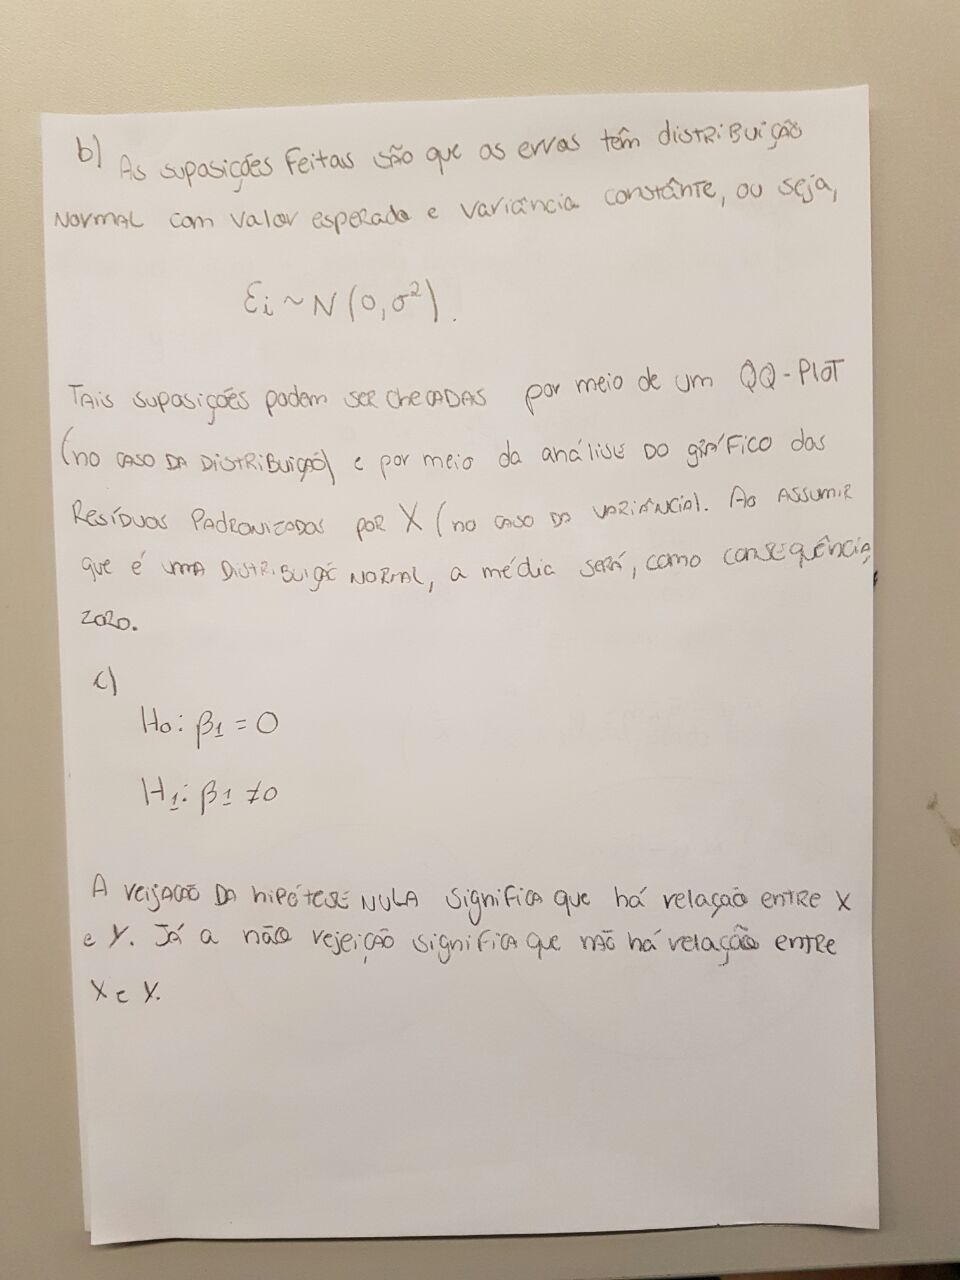 b) As suposições feitas são que os erros têm distribuição
normal com valor esperado e variância constânte, ou seja,
Ɛi ~ N(0,σ²).
Tais suposições podem ser checadas por meio de um QQ-Plot
(no caso da distribuição) e por meio da análise do gráfico dos
Resíduos Padronizados por X (no caso da variância). Ao assumir
que é uma distribuiçã normal, a média será, como consequência,
zero.
c)
H0: β1 = 0
H1: β1 ≠ 0
A reijação da hipótese nula significa que há relação entre X
e Y. Já a não rejeição significa que não há relação entre
X e Y.